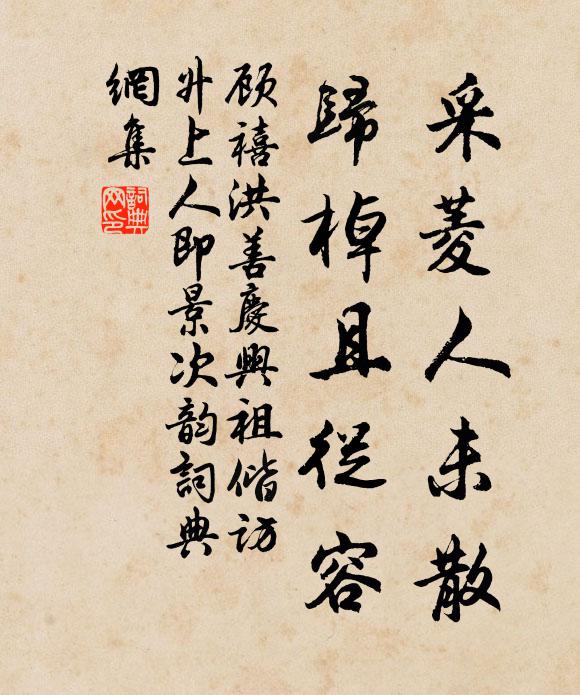 采菱人未散
歸棹且從容
顧禧洪善慶興祖偕訪
升上人即景次韵詞典
網集
詞典網印